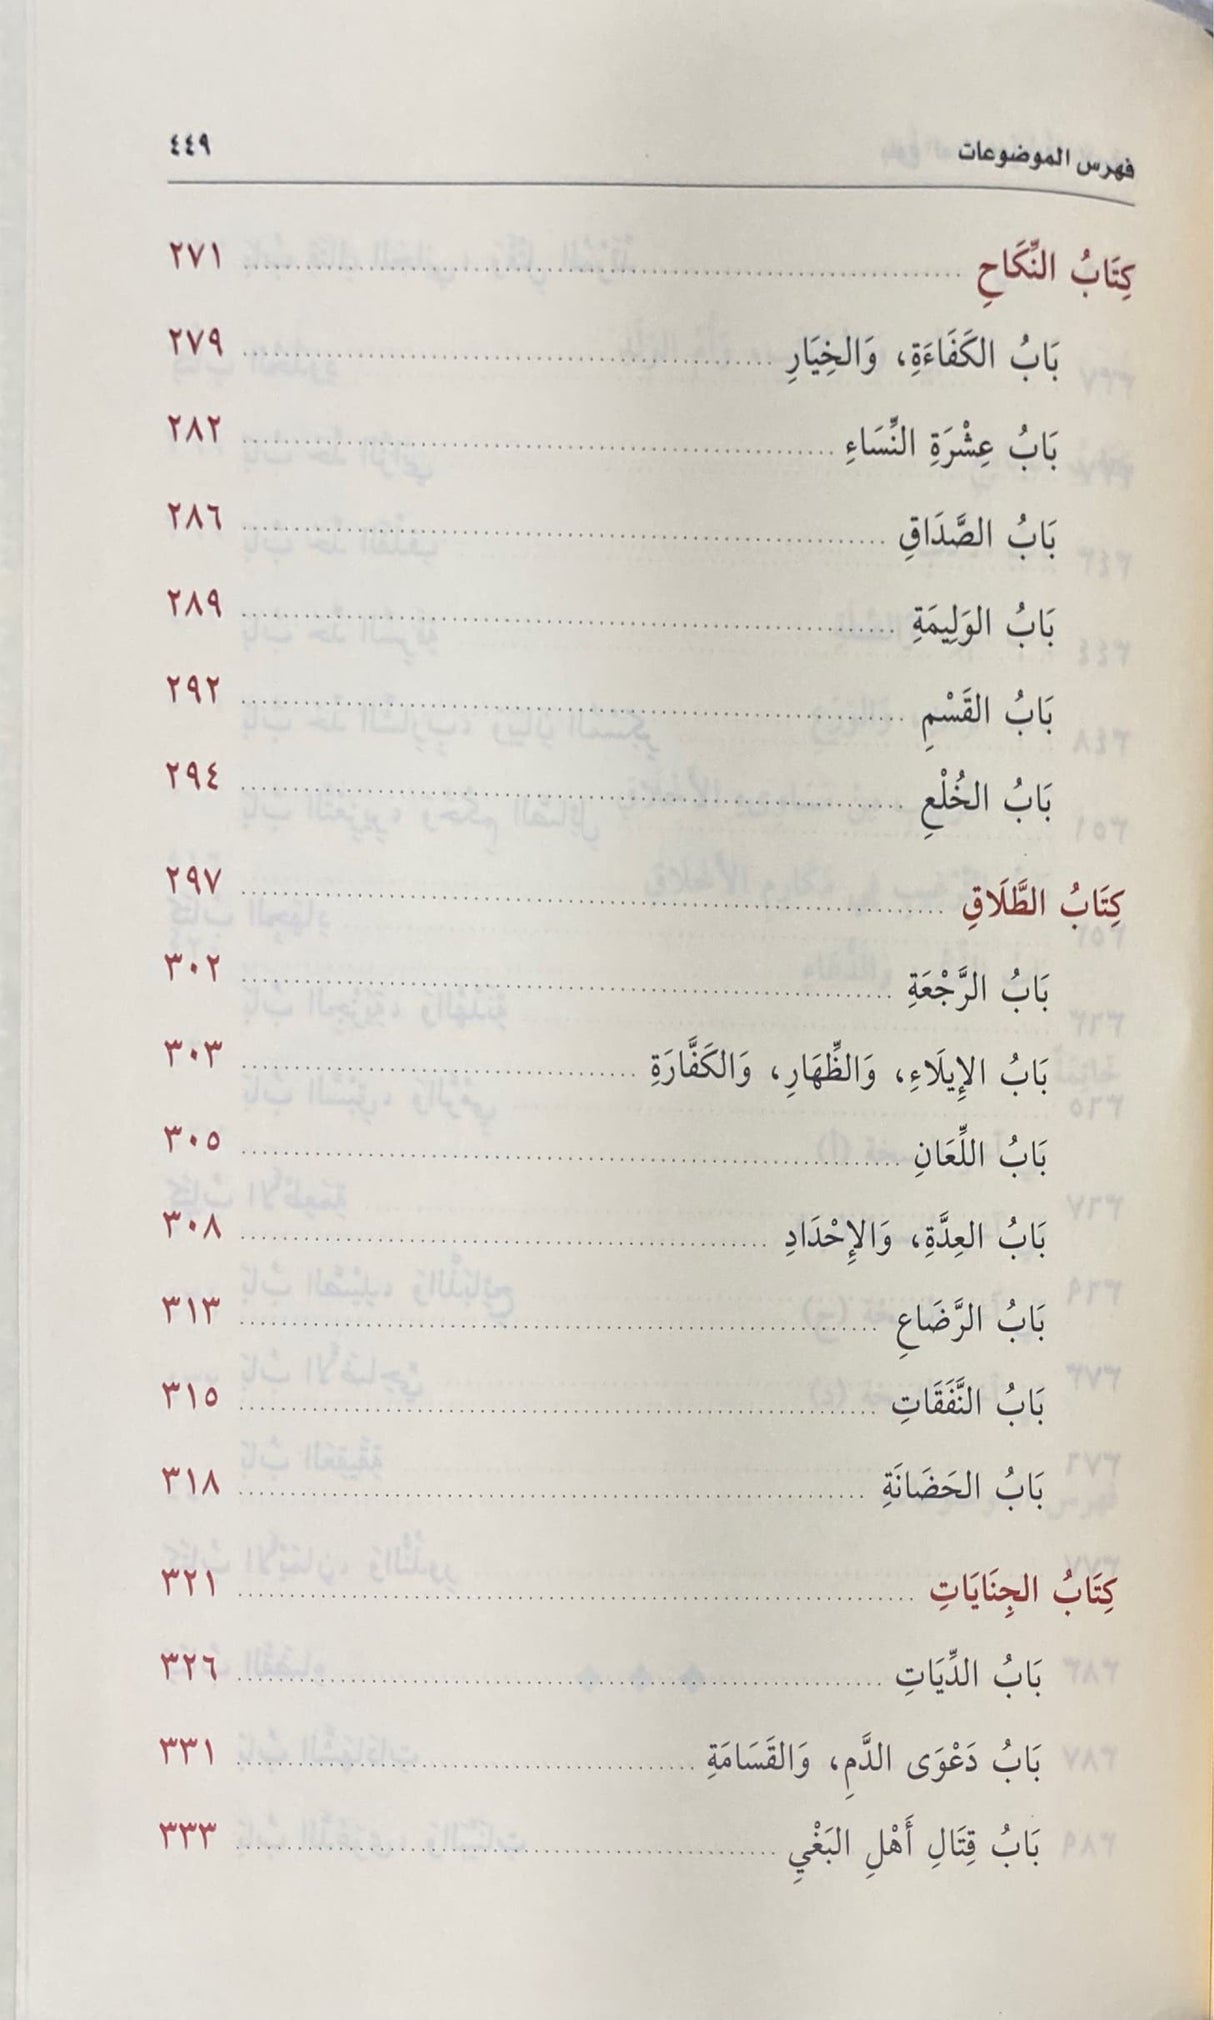 فهرس الموضوعات ٤٤٩
كِتَابُ النِّكَاحِ ........ ٢٧١
بَابُ الكَفَاءَةِ، وَالخِيَارِ ........ ٢٧٩
بَابُ عِشْرَةِ النِّسَاءِ ........ ٢٨٢
بَابُ الصَّدَاقِ ........ ٢٨٦
بَابُ الوَلِيمَةِ ........ ٢٨٩
بَابُ القَسْمِ ........ ٢٩٢
بَابُ الخُلْعِ ........ ٢٩٤
كِتَابُ الطَّلَاقِ ........ ٢٩٧
بَابُ الرَّجْعَةِ ........ ٣٠٢
بَابُ الإِيلَاءِ، وَالظِّهَارِ، وَالكَفَّارَةِ ........ ٣٠٣
بَابُ اللِّعَانِ ........ ٣٠٥
بَابُ العِدَّةِ، وَالإِحْدَادِ ........ ٣٠٨
بَابُ الرَّضَاعِ ........ ٣١٣
بَابُ النَّفَقَاتِ ........ ٣١٥
بَابُ الحَضَانَةِ ........ ٣١٨
كِتَابُ الجِنَايَاتِ ........ ٣٢١
بَابُ الدِّيَاتِ ........ ٣٢٦
بَابُ دَعْوَى الدَّمِ، وَالقَسَامَةِ ........ ٣٣١
بَابُ قِتَالِ أَهْلِ البَغْيِ ........ ٣٣٣